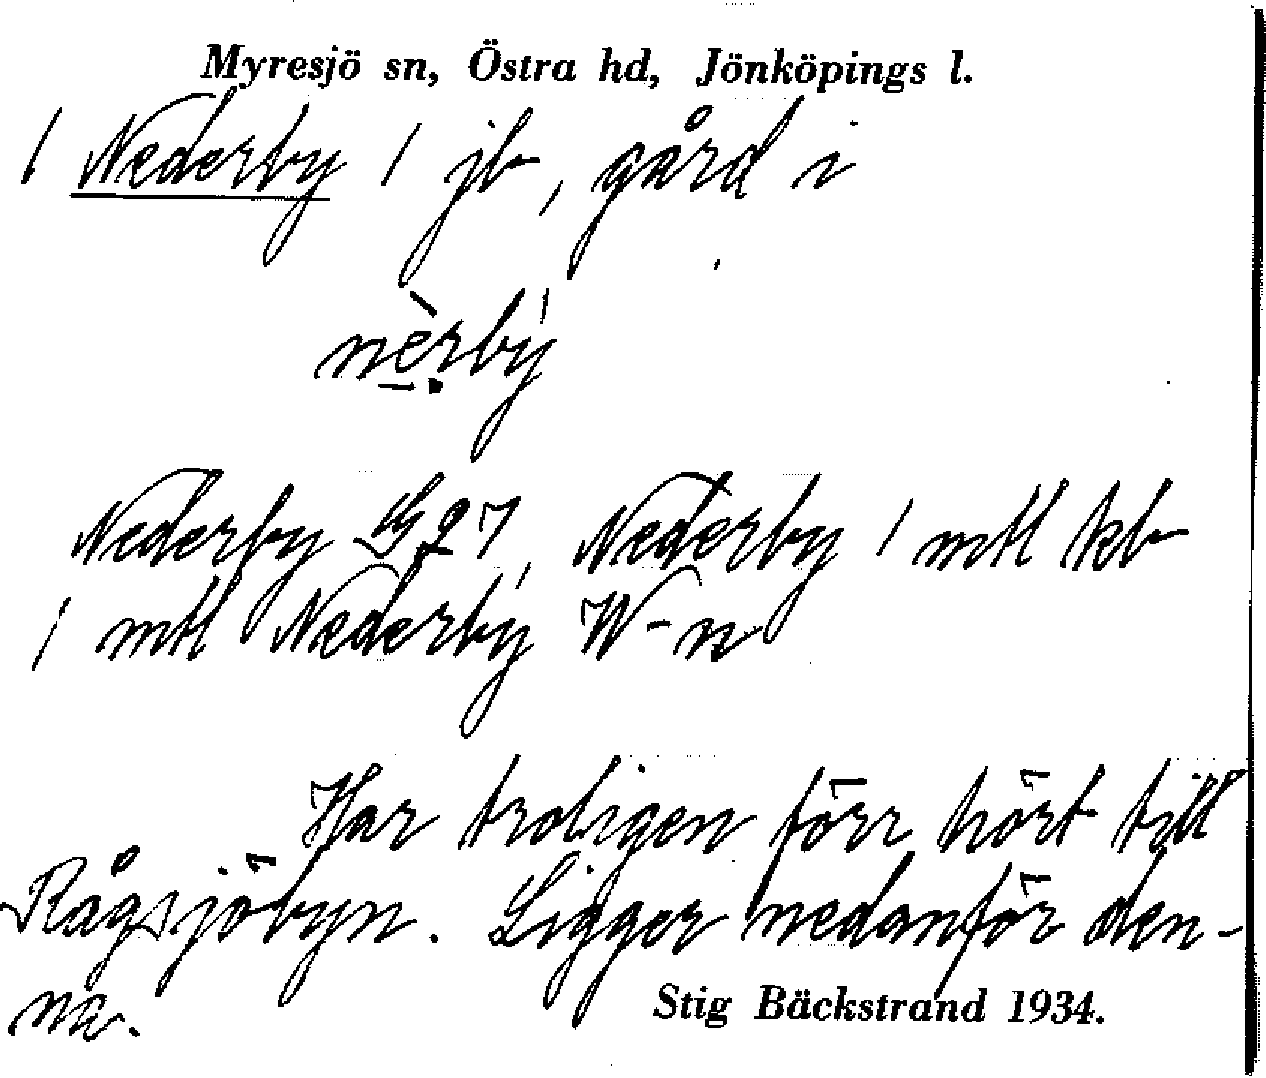 Myresjö sn, Östra hd, Jönköpings l.
/ Nederby / jb, gård i
nèrby
Nederby G 27, Nederby 1 mtl kb
1 mtl Nederby W-n
Har troligen förr hört till
Rågsjöbyn. Ligger nedanför den-
na.
Stig Bäckstrand 1934.